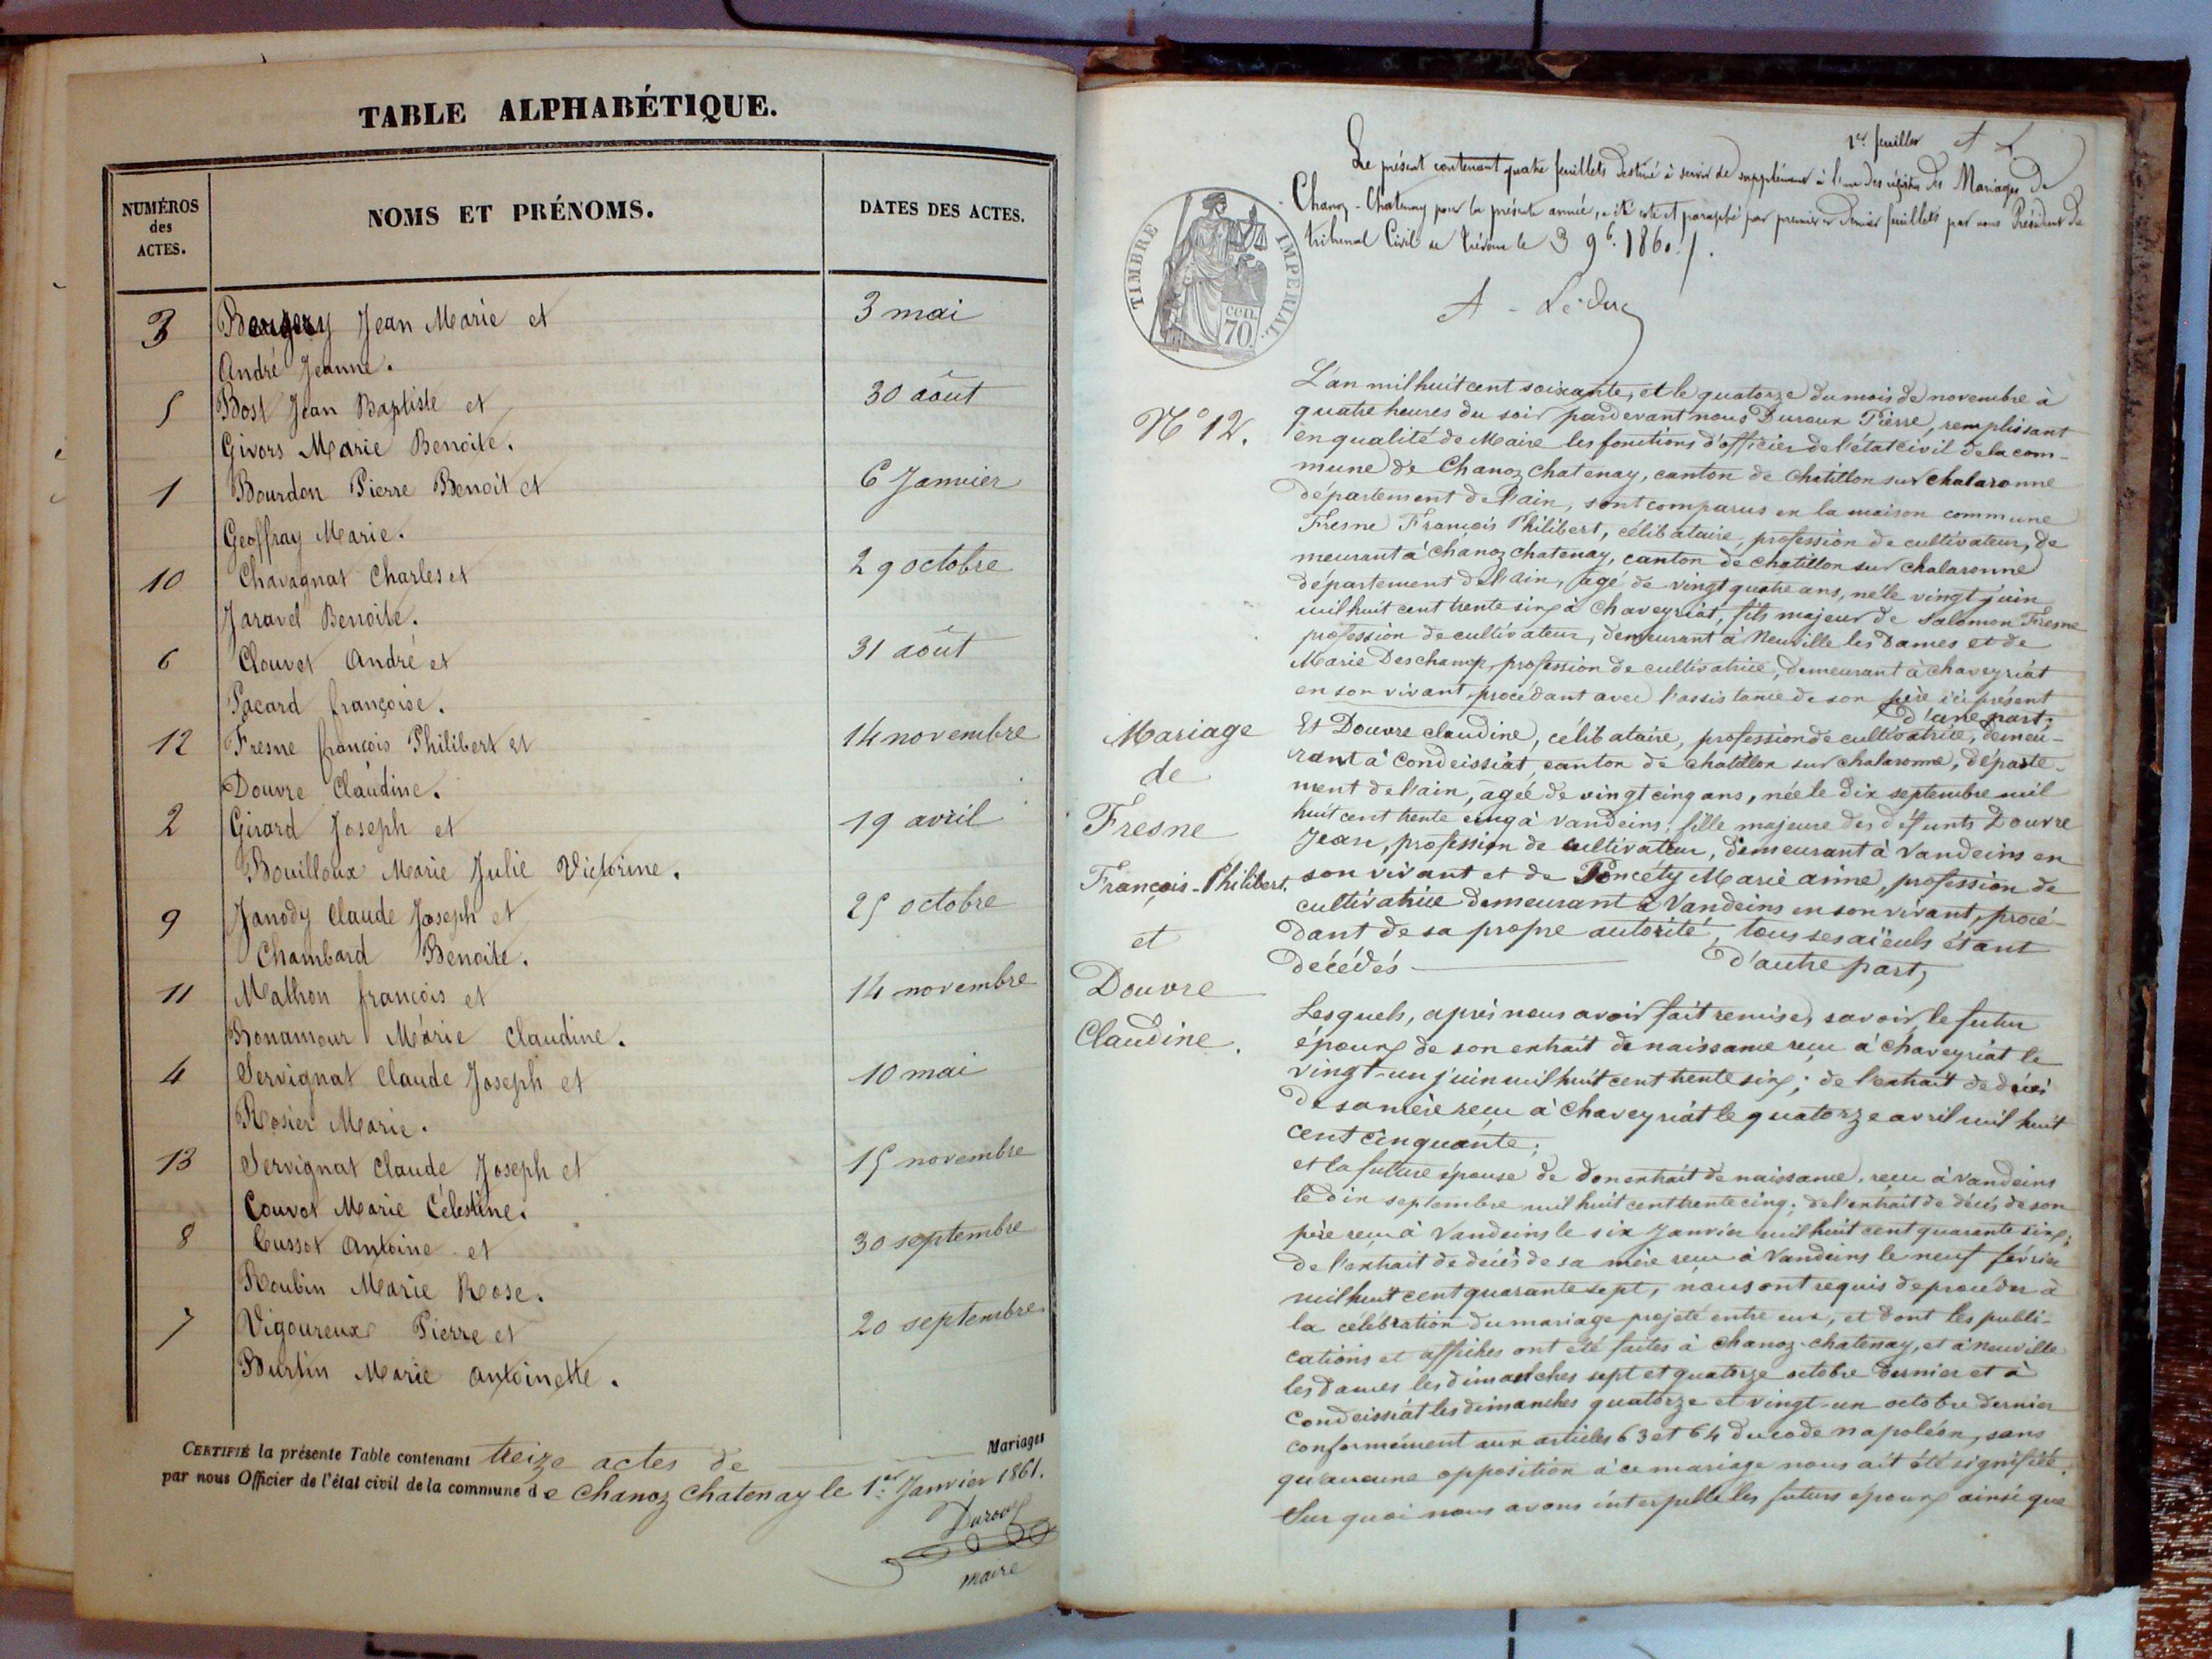 TABLE ALPHABÉTIQUE.
NUMÉROS
des
ACTES.
NOMS ET PRÉNOMS.
DATES DES ACTES.
3 Jean Marie et 3 mai
André Jeanne.
5 Bost Jean Baptiste et 30 août
Givors Marie Benoite.
1 Bourdon Pierre Benoit et 6 Janvier
Geoffray Marie.
10 Chavagnat Charles et 29 octobre
Jaravel Benoite.
6 Clouvet André et 31 août
Pacard françoise.
12 Fresne françois Philibert et 14 novembre
Douvre Claudine.
2 Girard Joseph et 19 avril
Bouilloux Marie Julie Victorine.
9 Janody Claude Joseph et 25 octobre
Chambard Benoite.
11 Malhon françois et 14 novembre
Bonamour Marie Claudine.
4 Servignat Claude Joseph et 10 mai
Rosier Marie.
13 Servignat Claude Joseph et 15 novembre
Couvot Marie Célestine.
8 Cussot Antoine et 30 septembre
Roubin Marie Rose.
7 Vigoureux Pierre et 20 septembre
Burtin Marie antoinette.
CERTIFIÉ la présente Table contenant treize actes de Mariages
par nous Officier de l'état civil de la commune de Chanoz Chatenay le 1er Janvier 1861.
maire
1er feuillet A L
Le présent contenant quatre feuillets destiné à servir de supplément à l'un des régistres des Mariages de
Chanoz-Chatenay pour la présente année, a été coté et paraphé par premier et dernier feuillets par nous Président du
tribunal Civil de Trévoux le 3 9b. 1860.
TIMBRE IMPÉRIAL.
70 cen.
A - Leduc
N° 12.
L'an mil huit cent soixante, et le quatorze du mois de novembre à
quatre heures du soir pardevant nous Duroux Pierre, remplissant
en qualité de Maire les fonctions d'officier de l'état civil de la com-
mune de Chanoz chatenay, canton de chatillon sur chalaronne
département de l'ain, sont comparus en la maison commune
Fresne François Philibert, célibataire, profession de cultivateur, de
meurant à chanoz chatenay, canton de chatillon sur chalaronne
département de l'ain, agé de vingt quatre ans, né le vingt juin
mil huit cent trente six à chaveyriat, fils majeur de Salomon Fresne
profession de cultivateur, demeurant à Neuville les Dames et de
Marie Deschamp, profession de cultivatrice, demeurant à chaveyriat
en son vivant, procédant avec l'assistance de son père ici présent
d'une part;
Mariage
de
Fresne
François-Philibert
et
Douvre
Claudine.
Et Douvre claudine, célibataire, profession de cultivatrice, demeu-
rant à condeissiat, canton de chatillon sur chalaronne, départe-
ment de l'ain, agée de vingt cinq ans, née le dix septembre mil
huit cent trente cinq à vandeins, fille majeure des défunts Douvre
Jean, profession de cultivateur, demeurant à vandeins en
son vivant et de Poncéty Marie anne, profession de
cultivatrice demeurant à Vandeins en son vivant, procé-
dant de sa propre autorité, tous ses aïeuls étant
décédés d'autre part,
Lesquels, après nous avoir fait remise, savoir le futur
époux de son extrait de naissance reçu à chaveyriat le
vingt-un juin mil huit cent trente six; de l'extrait de décès
de sa mère reçu à chaveyriat le quatorze avril mil huit
cent cinquante;
et la future épouse de don extrait de naissance, reçu à vandeins
le dix septembre mil huit cent trente cinq; de l'extrait de décès de son
père reçu à Vandeins le six Janvier mil huit cent quarante six;
de l'extrait de décès de sa mère reçu à Vandeins le neuf février
mil huit cent quarante sept, nous ont requis de procéder à
la célébration du mariage projeté entre eux, et dont les publi-
cations et affiches ont été faites à chanoz-chatenay, et à neuville
les Dames les dimanches sept et quatorze octobre dernier et à
condeissiat les dimanches quatorze et vingt-un octobre dernier
conformément aux articles 63 et 64 du code napoléon, sans
qu'aucune opposition à ce mariage nous ait été signifiée.
Sur quoi nous avons interpellé les futurs époux ainsi que